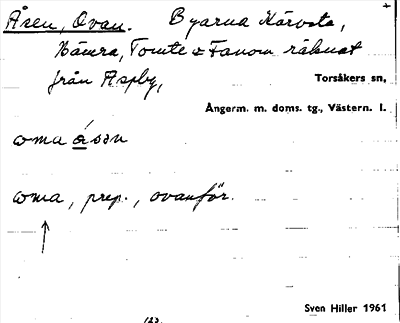 Åsen, Ovan. Byarna Kärvsta,
Hämra, Tomte & Fanom räknat
från Aspby,
Torsåkers sn,
Ångerm. m. doms. tg., Västern. l.
oma åsən
oma, prep., ovanför.
↑
Sven Hiller 1961